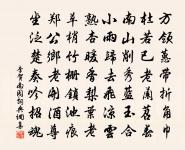 方領蕙帶折角巾
杜若已老蘭苕春
南山削秀藍玉合
小雨歸去飛涼雲
熟杏暖香梨葉老
草梢竹柵鎖池痕
鄭公鄉老開酒尊
坐泛楚奏吟招魂
李賀南園詞典網書